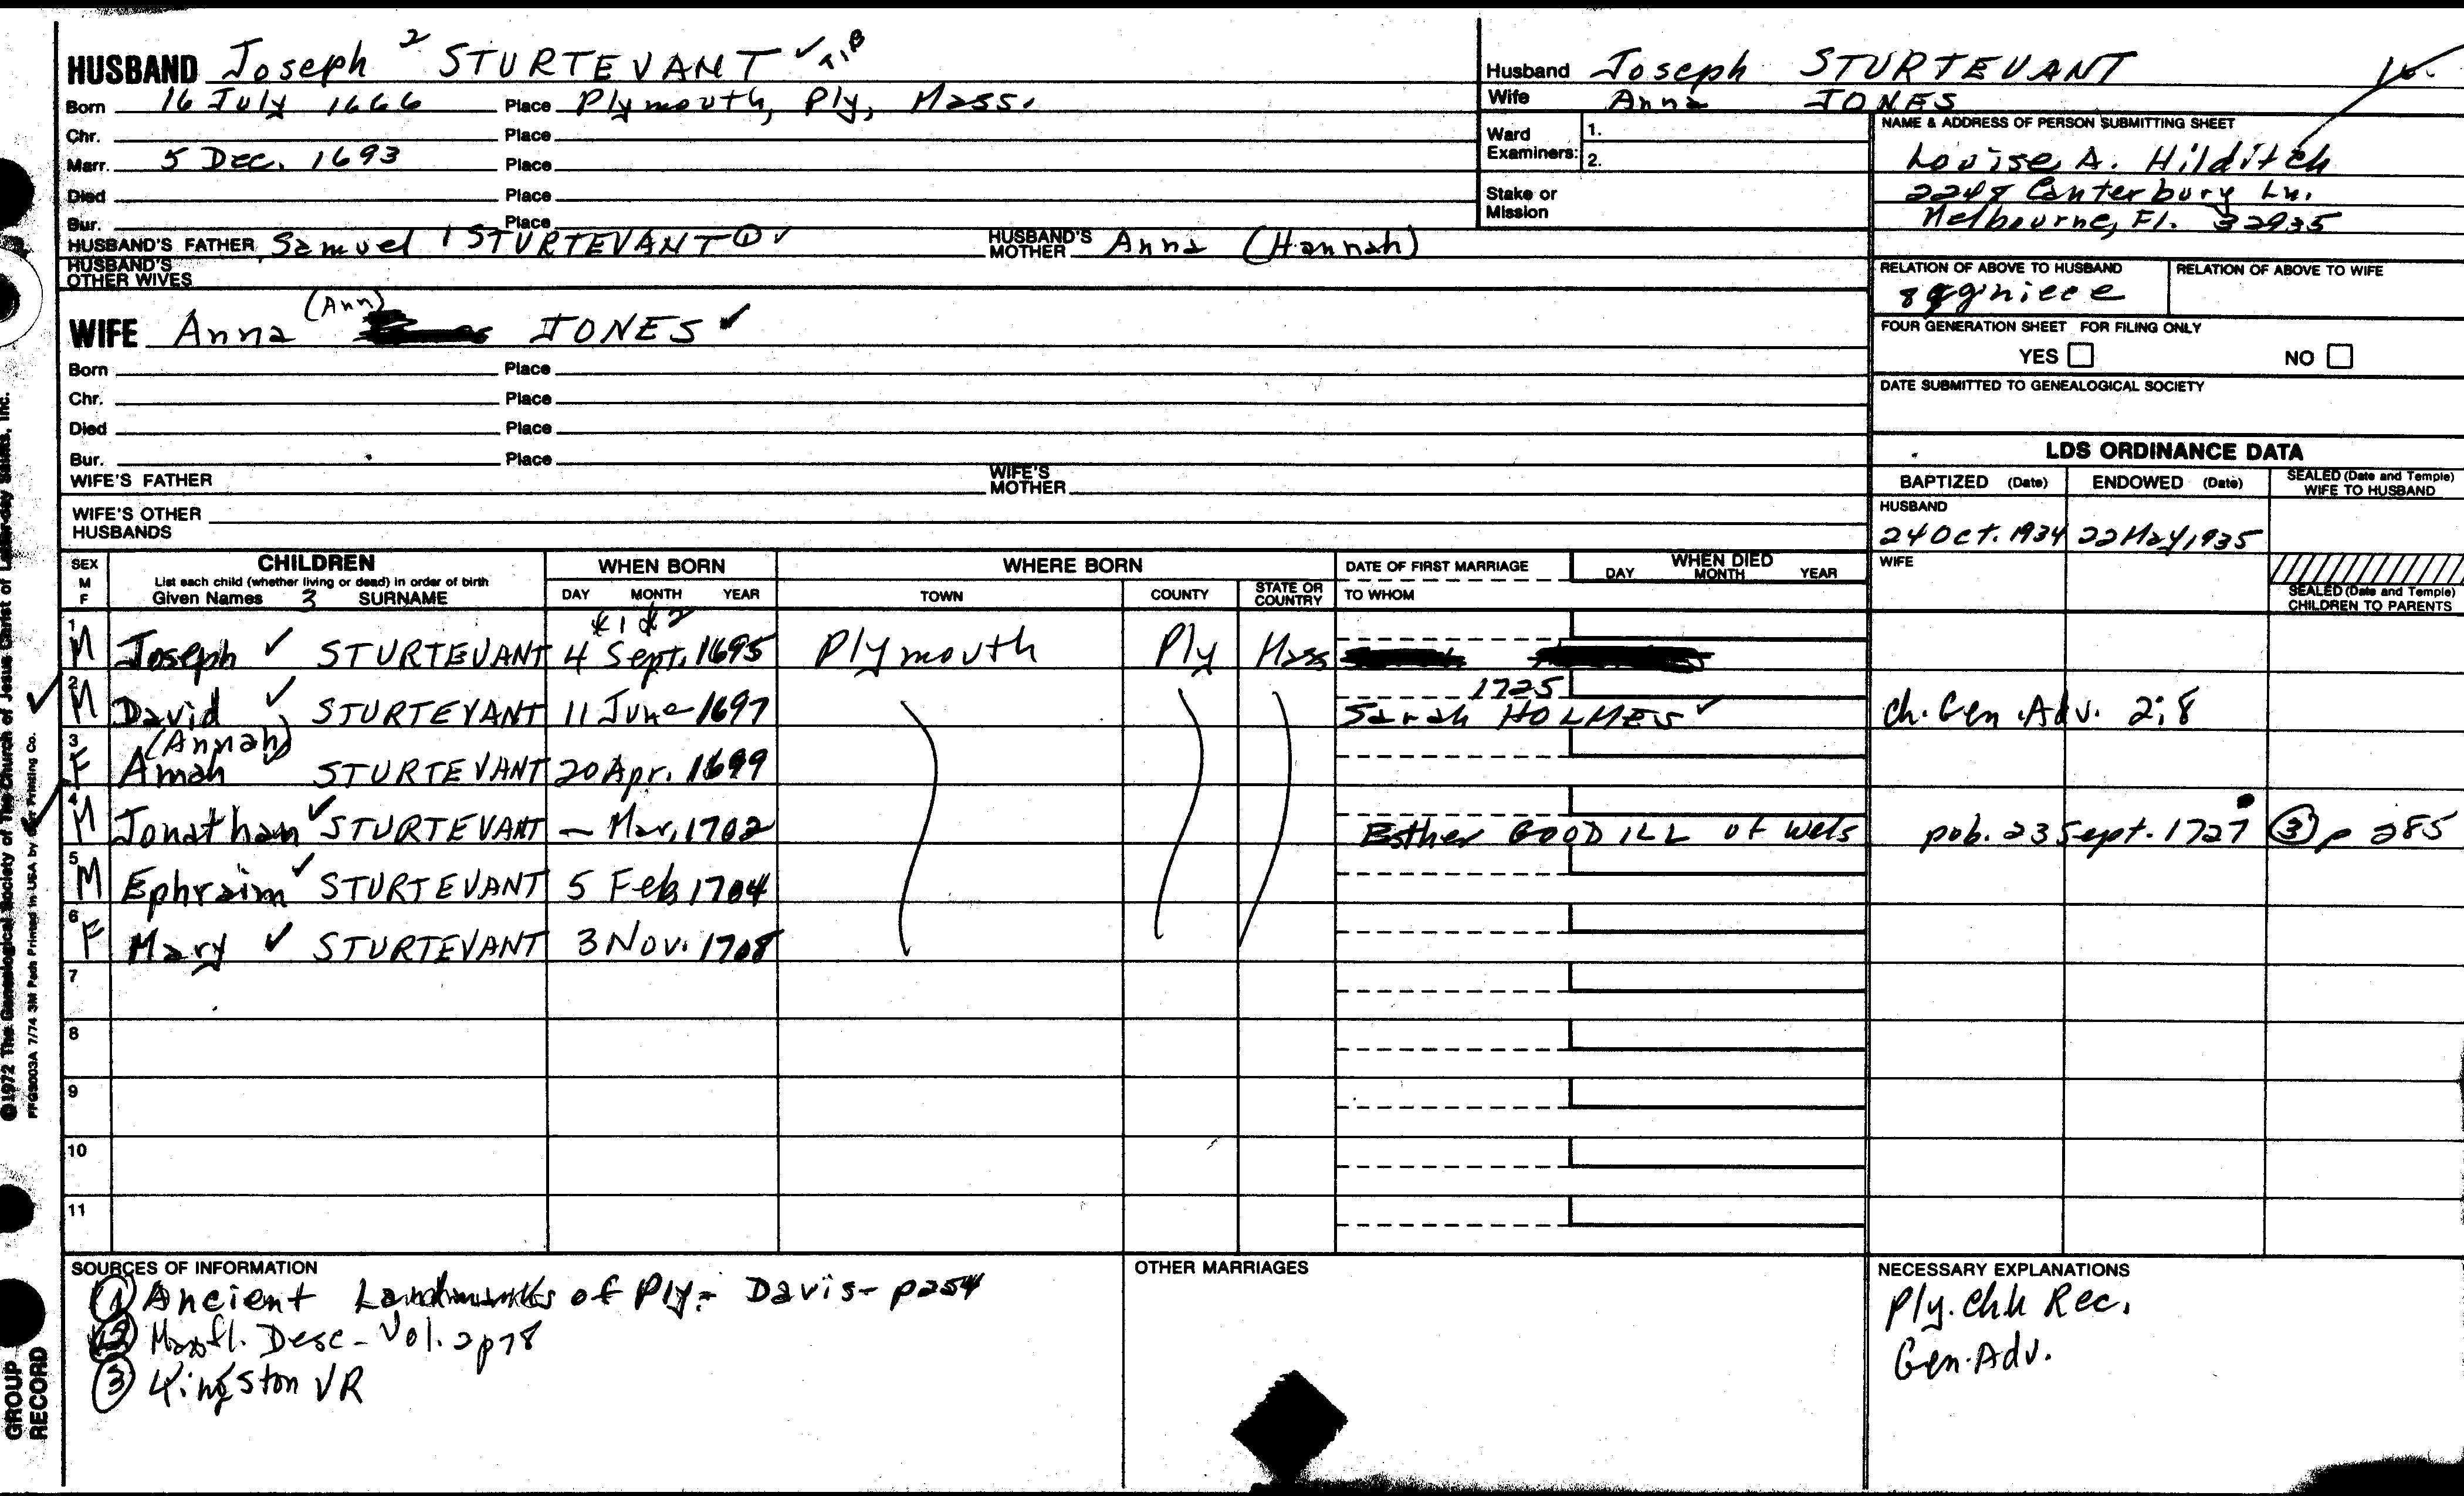 HUSBAND Joseph 2 STURTEVANT ✓
Born 16 July 1666 Place Plymouth, Ply, Mass.
Chr. Place
Marr. 5 Dec. 1693 Place
Died Place
Bur. Place
HUSBAND'S FATHER Samuel 1 STURTEVANT ① ✓ HUSBAND'S MOTHER Anna (Hannah)
HUSBAND'S OTHER WIVES
(Ann)
WIFE Anna JONES ✓
Born Place
Chr. Place
Died Place
Bur. Place
WIFE'S FATHER WIFE'S MOTHER
WIFE'S OTHER HUSBANDS
Husband Joseph STURTEVANT
Wife Anna JONES
Ward Examiners: 1.
2.
Stake or Mission
NAME & ADDRESS OF PERSON SUBMITTING SHEET
Louise A. Hilditch
Canterbury Ln.
Melbourne, Fl. 32935
RELATION OF ABOVE TO HUSBAND RELATION OF ABOVE TO WIFE
FOUR GENERATION SHEET FOR FILING ONLY
YES NO
DATE SUBMITTED TO GENEALOGICAL SOCIETY
LDS ORDINANCE DATA
BAPTIZED (Date) ENDOWED (Date) SEALED (Date and Temple) WIFE TO HUSBAND
HUSBAND
24 Oct. 1934 22 May, 1935
WIFE
SEALED (Date and Temple) CHILDREN TO PARENTS
SEX M F CHILDREN WHEN BORN WHERE BORN DATE OF FIRST MARRIAGE WHEN DIED
List each child (whether living or dead) in order of birth DAY MONTH YEAR
Given Names 3 SURNAME DAY MONTH YEAR TOWN COUNTY STATE OR COUNTRY TO WHOM
1 M Joseph ✓ STURTEVANT 4 Sept. 1695 Plymouth Ply Mass
1725
2 M David ✓ STURTEVANT 11 June 1697 Sarah HOLMES ✓ Ch. Gen. Adv. 2;8
(Annah)
3 F Amah STURTEVANT 20 Apr. 1699
4 M Jonathan ✓ STURTEVANT – Mar, 1702 Esther GOODILL of Wels pub. 23 Sept. 1727 ③ p 285
5 M Ephraim ✓ STURTEVANT 5 Feb 1704
6 F Mary ✓ STURTEVANT 3 Nov. 1708
7
8
9
10
11
SOURCES OF INFORMATION
① Ancient Landmarks of Ply - Davis - p254
② Mayfl. Desc - Vol. 2 p78
③ Kingston VR
OTHER MARRIAGES
NECESSARY EXPLANATIONS
Ply. Chh Rec.
Gen. Adv.
©1972 The Genealogical Society of The Church of Jesus Christ of Latter-day Saints, Inc.
PFGS003A 7/74 3M Pads Printed in USA by Printing Co.
GROUP
RECORD